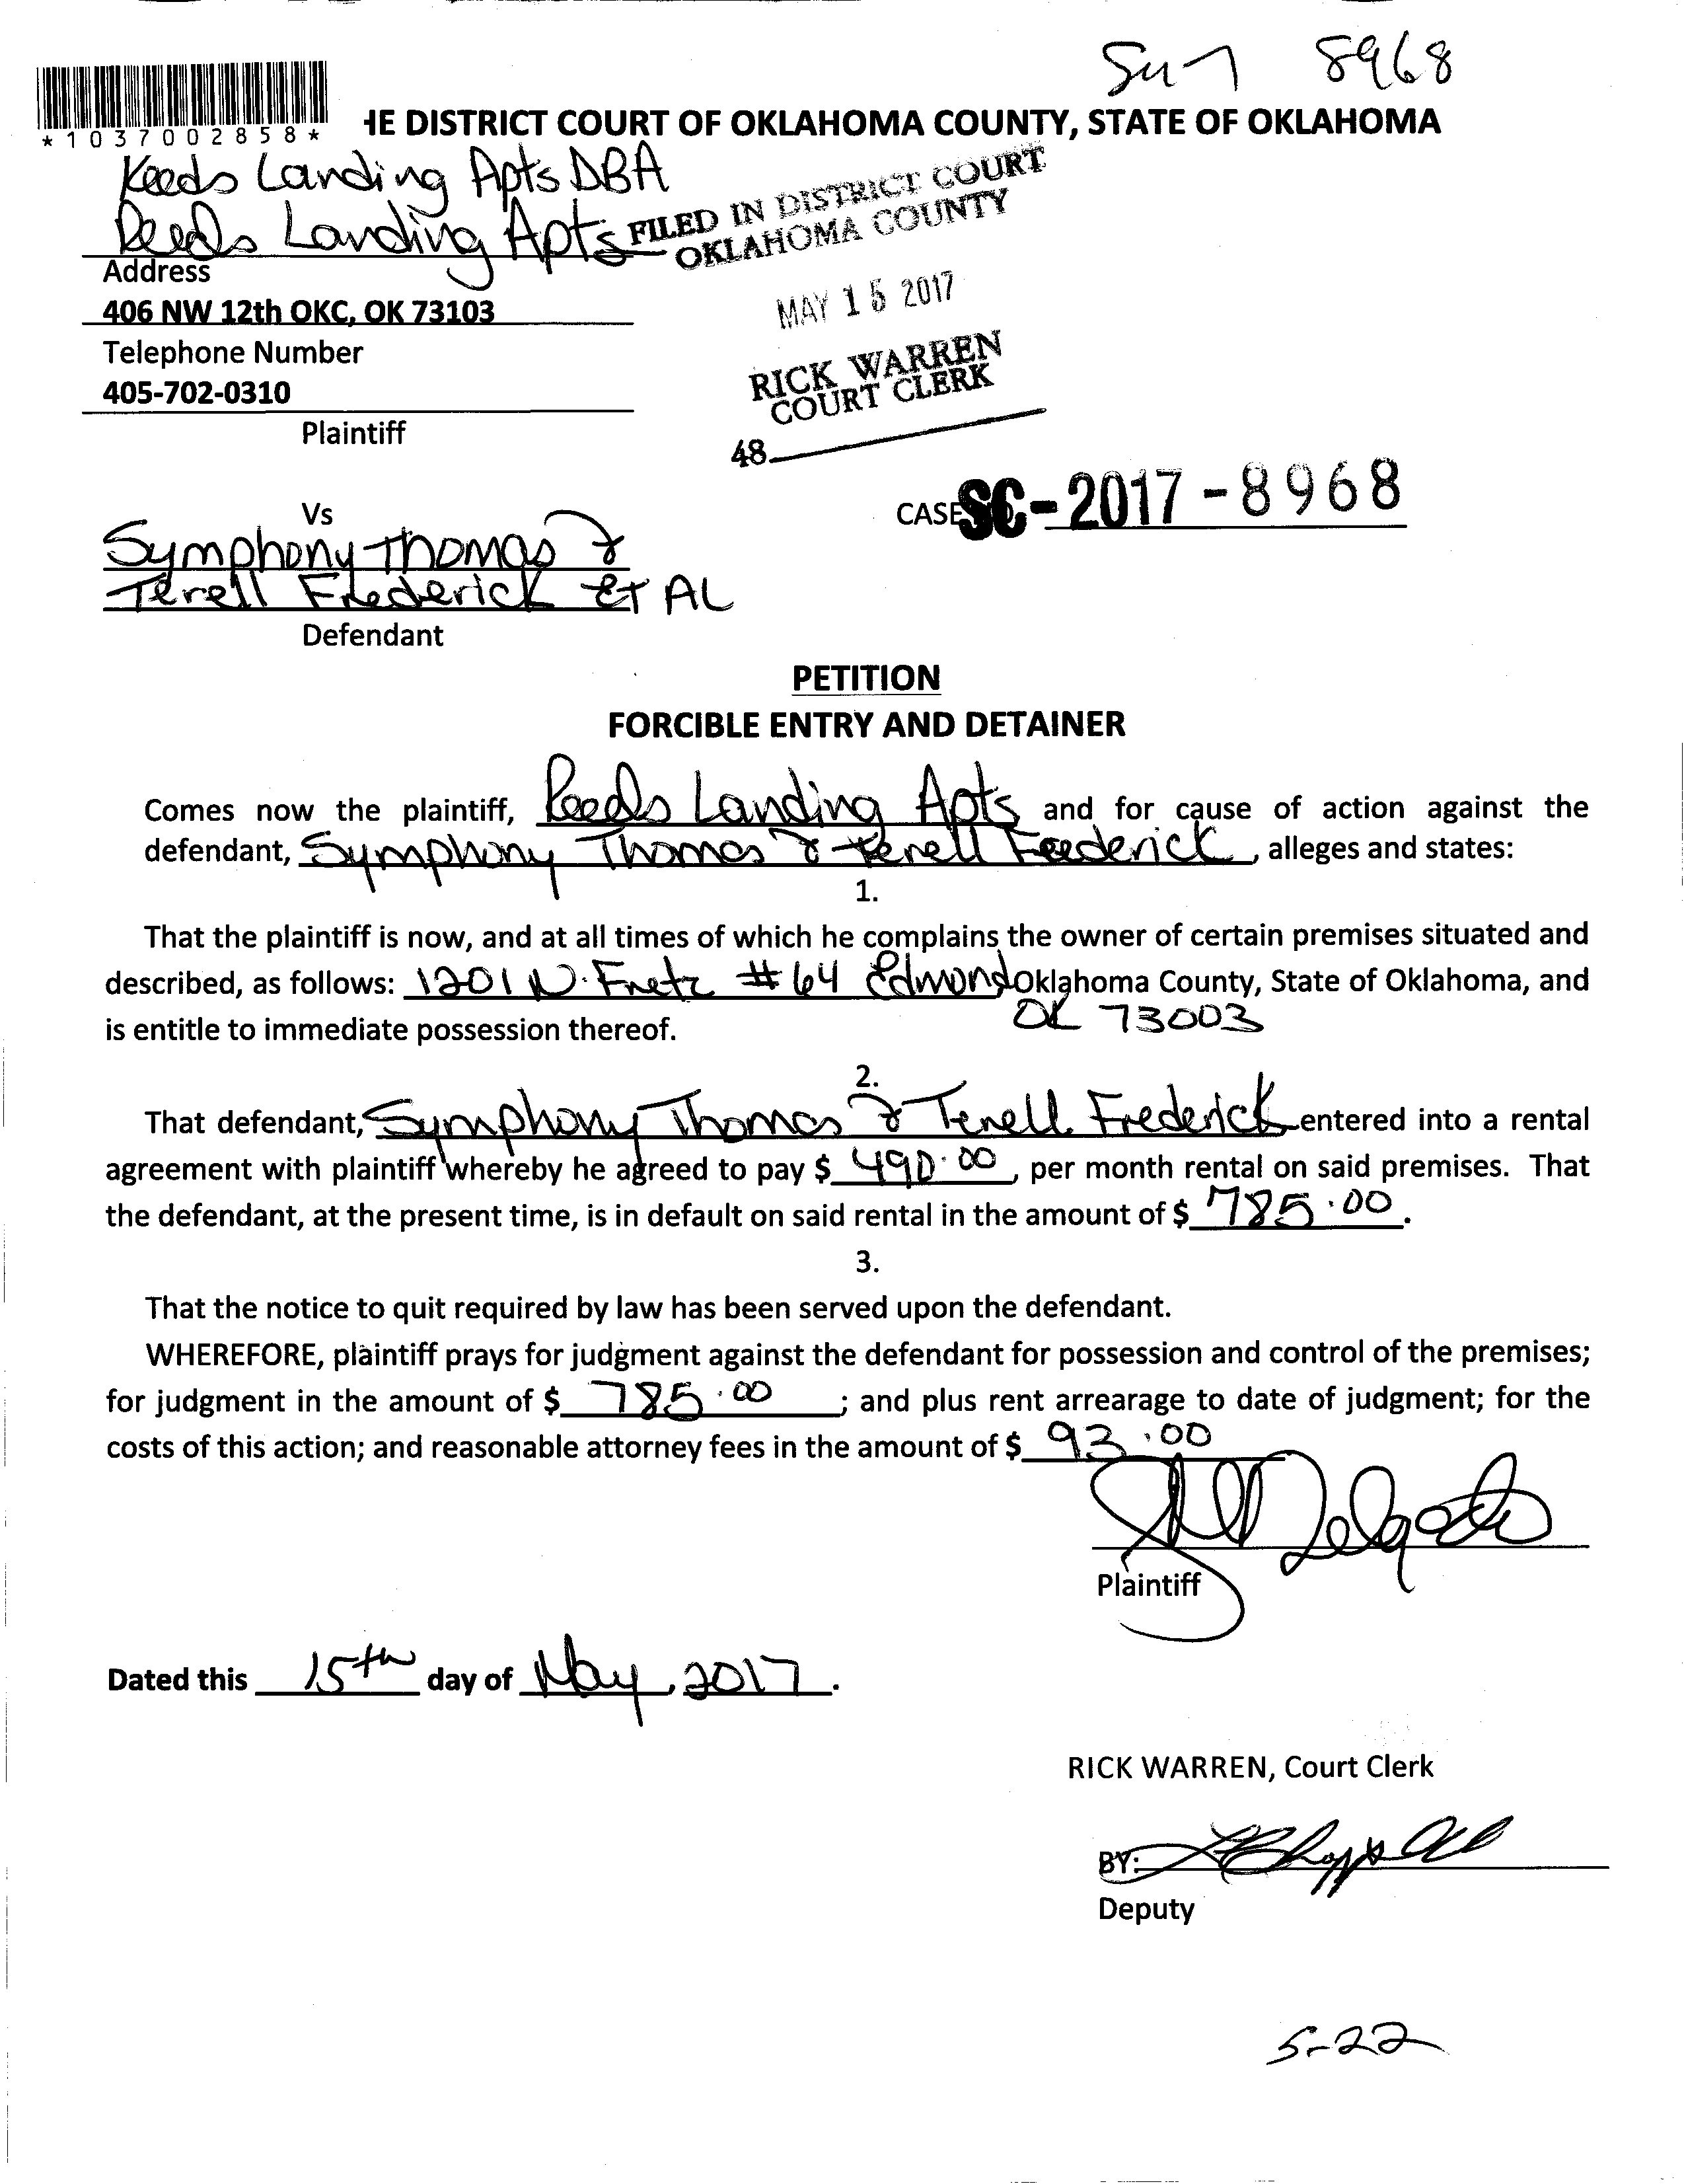 8968
*1037002858*
HE DISTRICT COURT OF OKLAHOMA COUNTY, STATE OF OKLAHOMA
Reeds Landing Apts DBA
Reeds Landing Apts
FILED IN DISTRICT COURT
OKLAHOMA COUNTY
Address
406 NW 12th OKC, OK 73103
MAY 15 2017
Telephone Number
405-702-0310
RICK WARREN
COURT CLERK
Plaintiff
48
Vs
CASE SC-2017-8968
Symphony Thomas &
Terell Frederick Et AL
Defendant
PETITION
FORCIBLE ENTRY AND DETAINER
Comes now the plaintiff, Reeds Landing Apts and for cause of action against the
defendant, Symphony Thomas & Terell Frederick, alleges and states:
1.
That the plaintiff is now, and at all times of which he complains the owner of certain premises situated and
described, as follows: 1201 N. Fretz #64 Edmond Oklahoma County, State of Oklahoma, and
OK 73003
is entitle to immediate possession thereof.
2.
That defendant, Symphony Thomas & Terell Frederick entered into a rental
agreement with plaintiff whereby he agreed to pay $ 490.00, per month rental on said premises. That
the defendant, at the present time, is in default on said rental in the amount of $ 785.00.
3.
That the notice to quit required by law has been served upon the defendant.
WHEREFORE, plaintiff prays for judgment against the defendant for possession and control of the premises;
for judgment in the amount of $ 785.00; and plus rent arrearage to date of judgment; for the
costs of this action; and reasonable attorney fees in the amount of $ 93.00
Delgado
Plaintiff
Dated this 15th day of May, 2017.
RICK WARREN, Court Clerk
BY:
Deputy
5-22